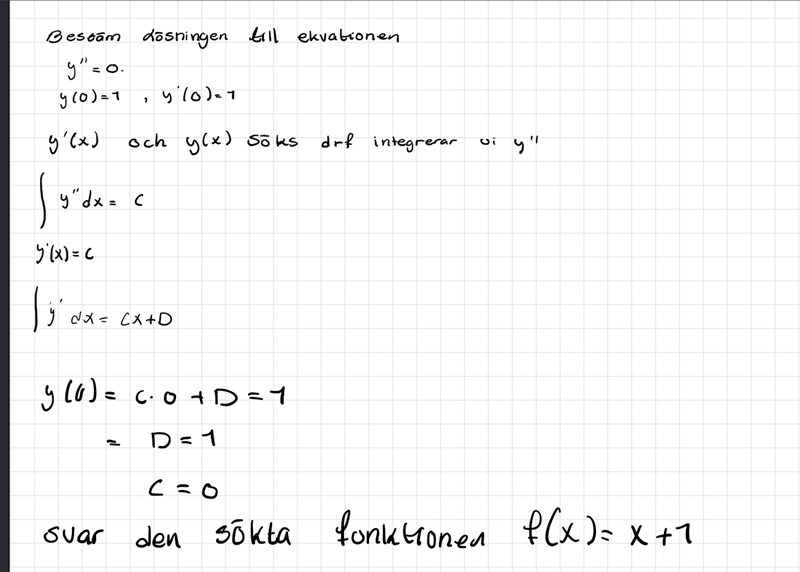 Bestäm lösningen till ekvationen
y'' = 0.
y(0)=1 , y'(0)=1
y'(x) och y(x) söks drf integrerar vi y''
∫ y'' dx = C
y'(x) = C
∫ y' dx = Cx+D
y(0) = C·0 + D = 1
= D = 1
C = 0
svar den sökta funktionen f(x) = x+1